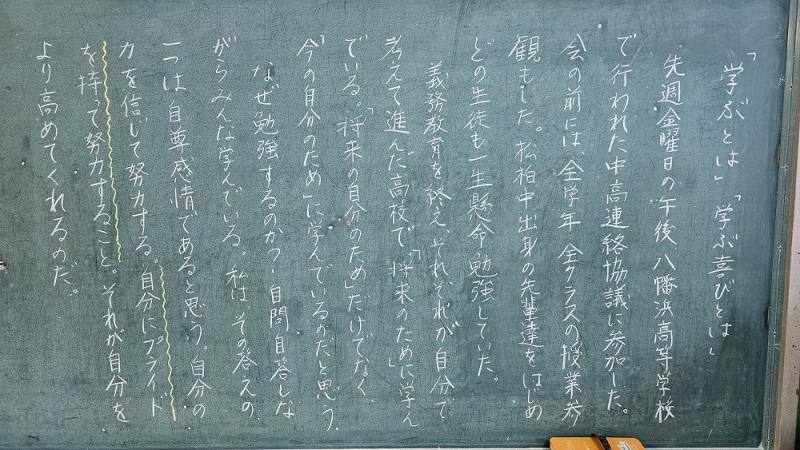 「学ぶとは」「学ぶ喜びとは」
先週金曜日の午後、八幡浜高等学校
で行われた中高連絡協議に参加した。
会の前には、全学年全クラスの授業参
観もした。松柏中出身の先輩達をはじめ
どの生徒も一生懸命勉強していた。
義務教育を終え、それぞれが自分で
考えて進んだ高校で、「将来のために学ん
でいる。「将来の自分のため」だけでなく、
「今の自分のため」に学んでいるのだと思う。
なぜ勉強するのかつ・自問自答しな
がらみんな学んでいる。私は、その答えの
一つは自尊感情であると思う。自分の
力を信じて努力する。自分にプライド
を持って努力すること。それが自分を
より高めてくれるのだ。